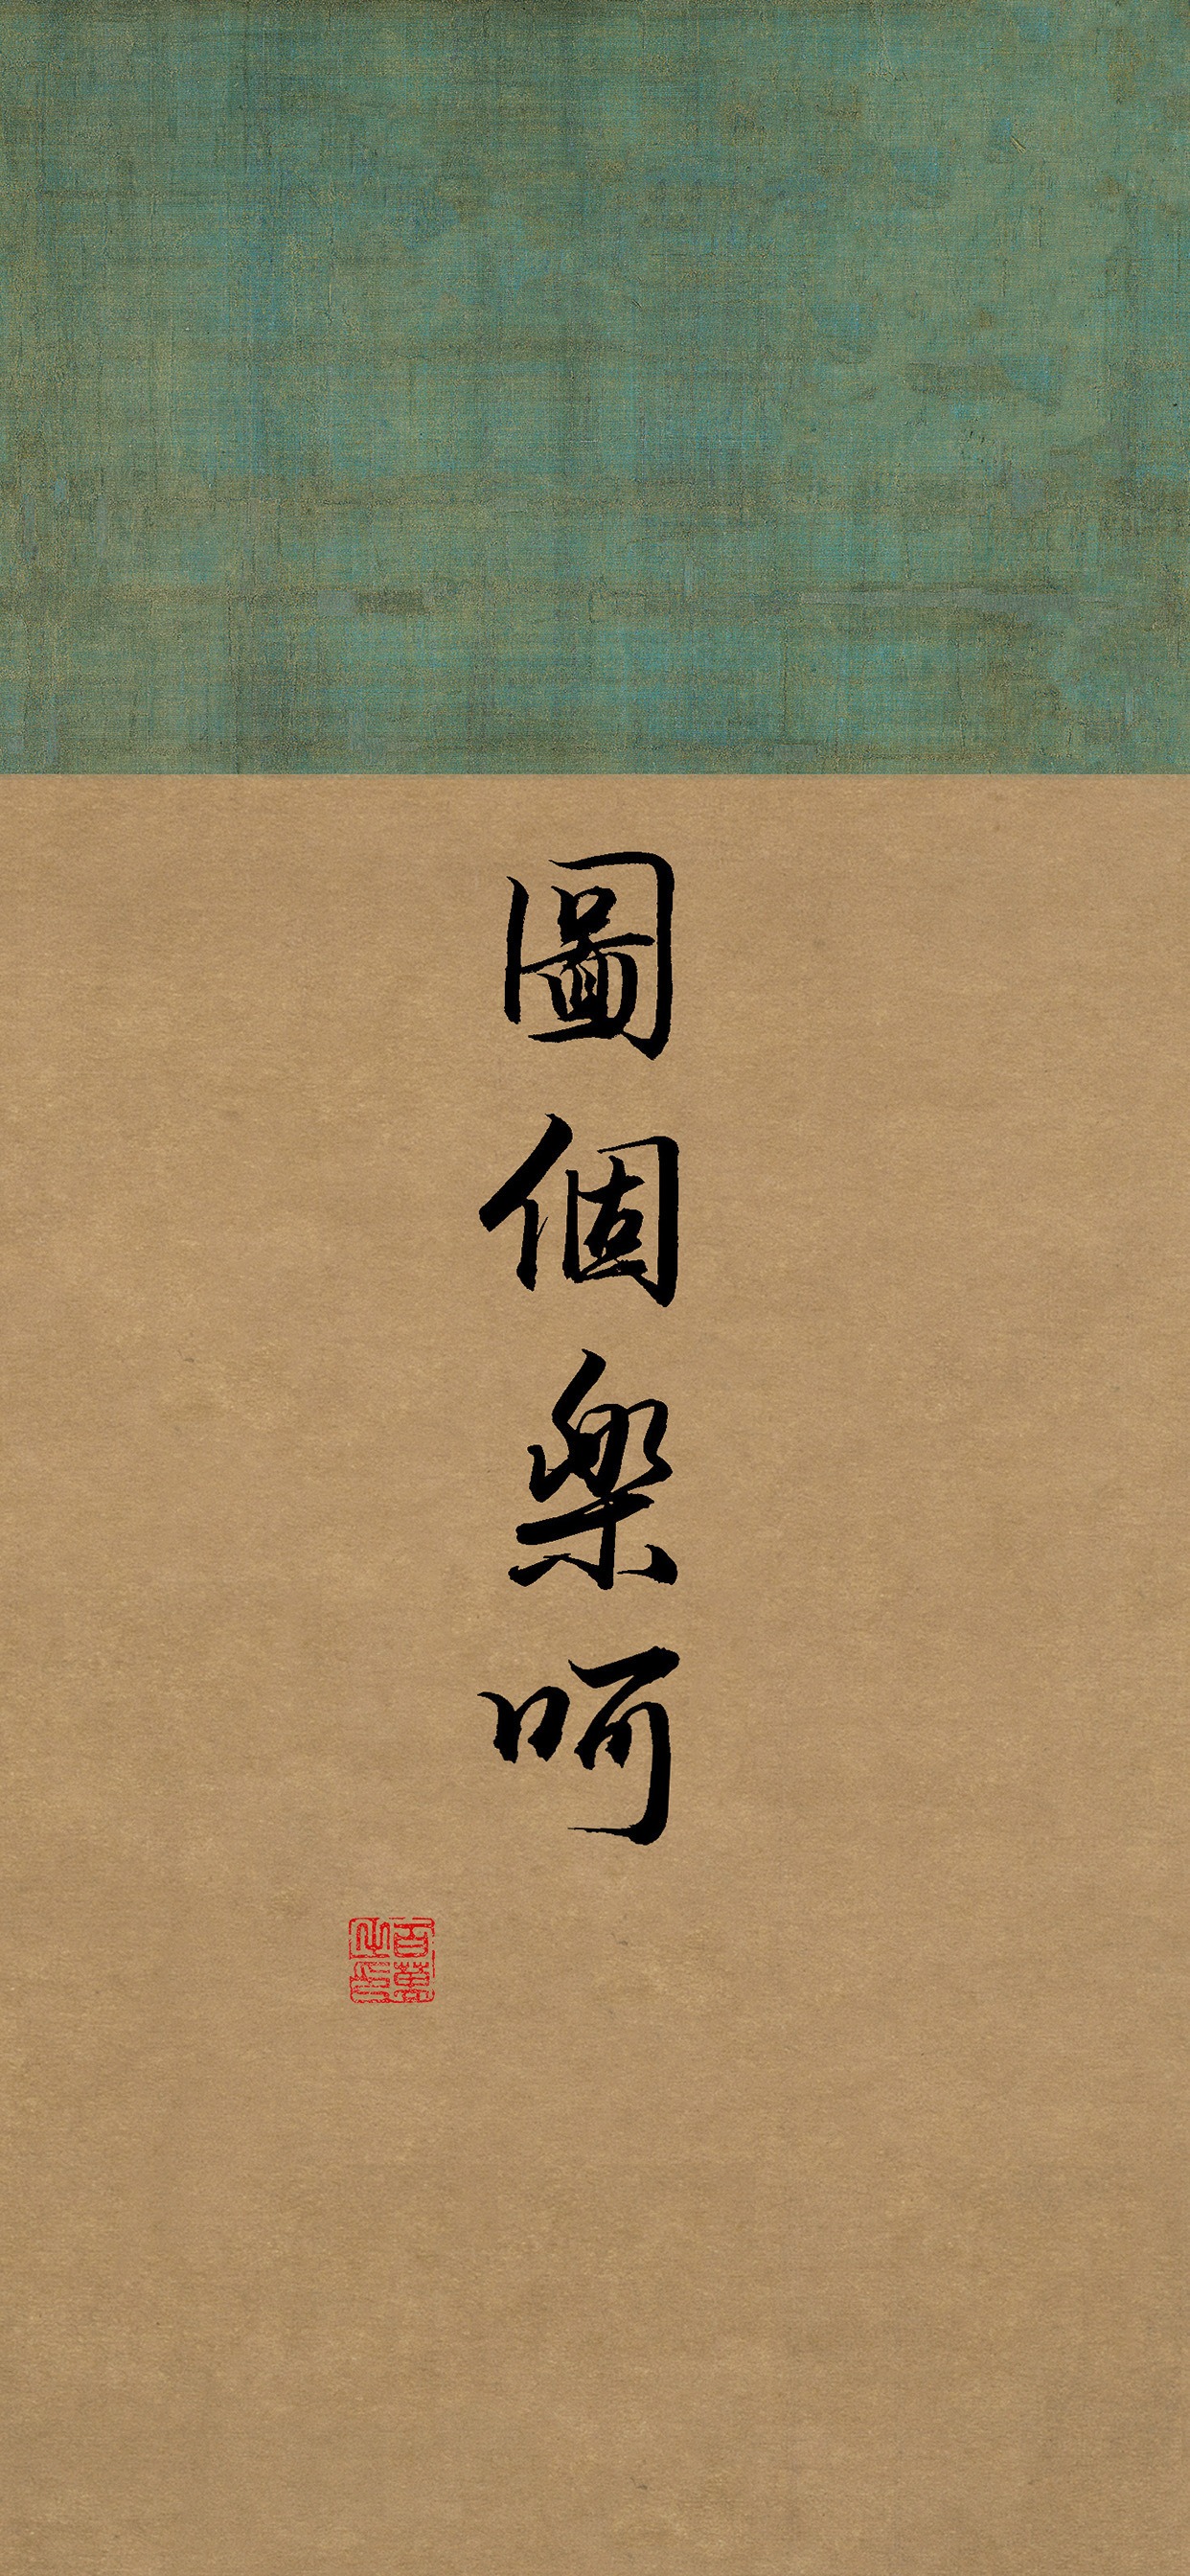 圖個樂呵